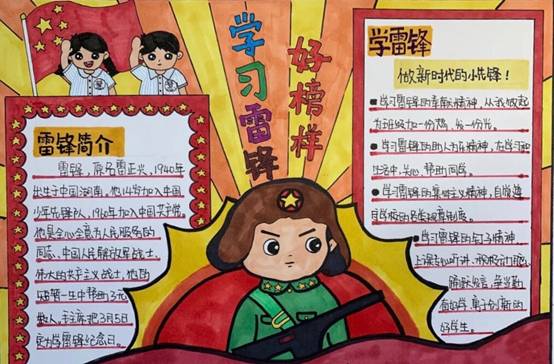 学习雷锋
好榜样
雷锋简介
雷锋，原名雷正兴，1940年
出生于中国湖南。他加入中国
少年先锋队，1960年加入中国共产党。
他是全心全意为人民服务的
同志、中国人民解放军战士，
伟大的共产主义战士，他的
一生中帮助了无
数人，毛主席把3月5日
定为学雷锋纪念日。
学雷锋
做新时代的小先锋！
学习雷锋的奉献精神，从我做起
为班级加一份热，发一份光。
学习雷锋的助人为乐精神，在学习和
生活中，关心、帮助同学。
学习雷锋的集体主义精神，自觉遵
守学校的各规章制度。
学习雷锋的钉子精神
上课专心听讲，积极动脑
踊跃发言，争当勤
奋好学，勇于创新的
好学生。